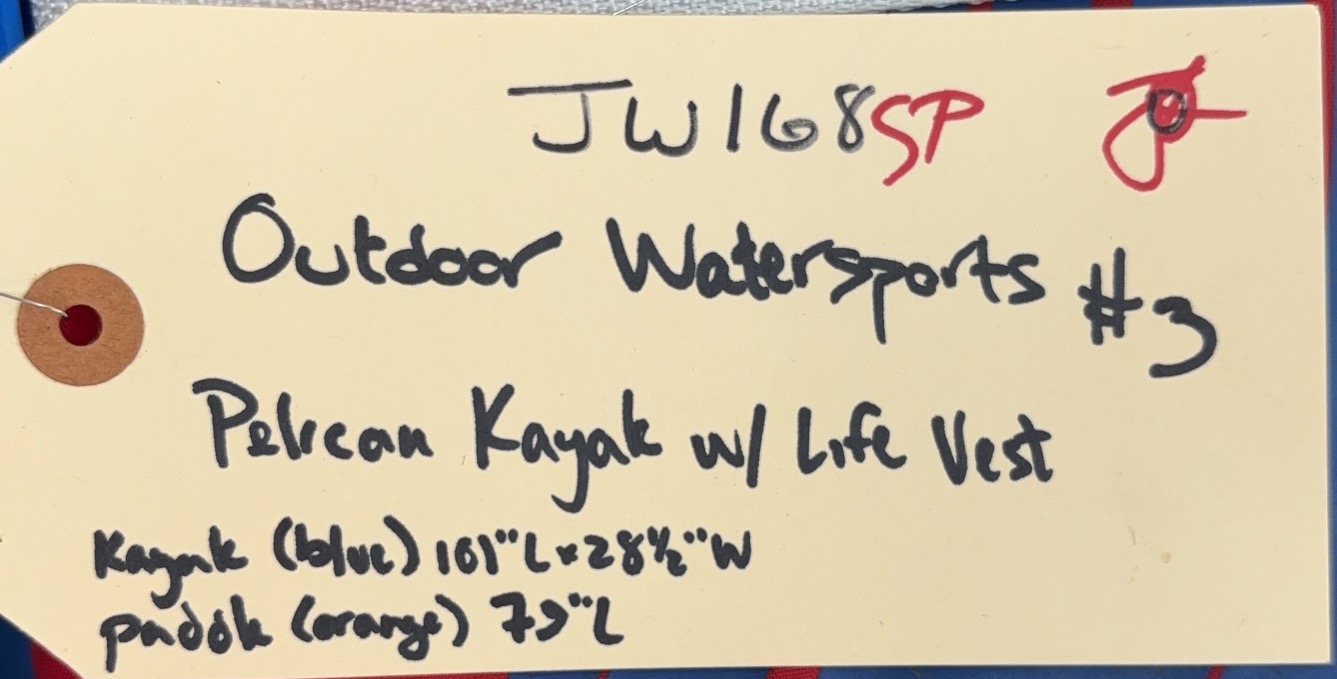 JW168SP
Outdoor Watersports #3
Pelican Kayak w/ Life Vest
Kayak (blue) 101"L x 28½"W
paddle (orange) 79"L